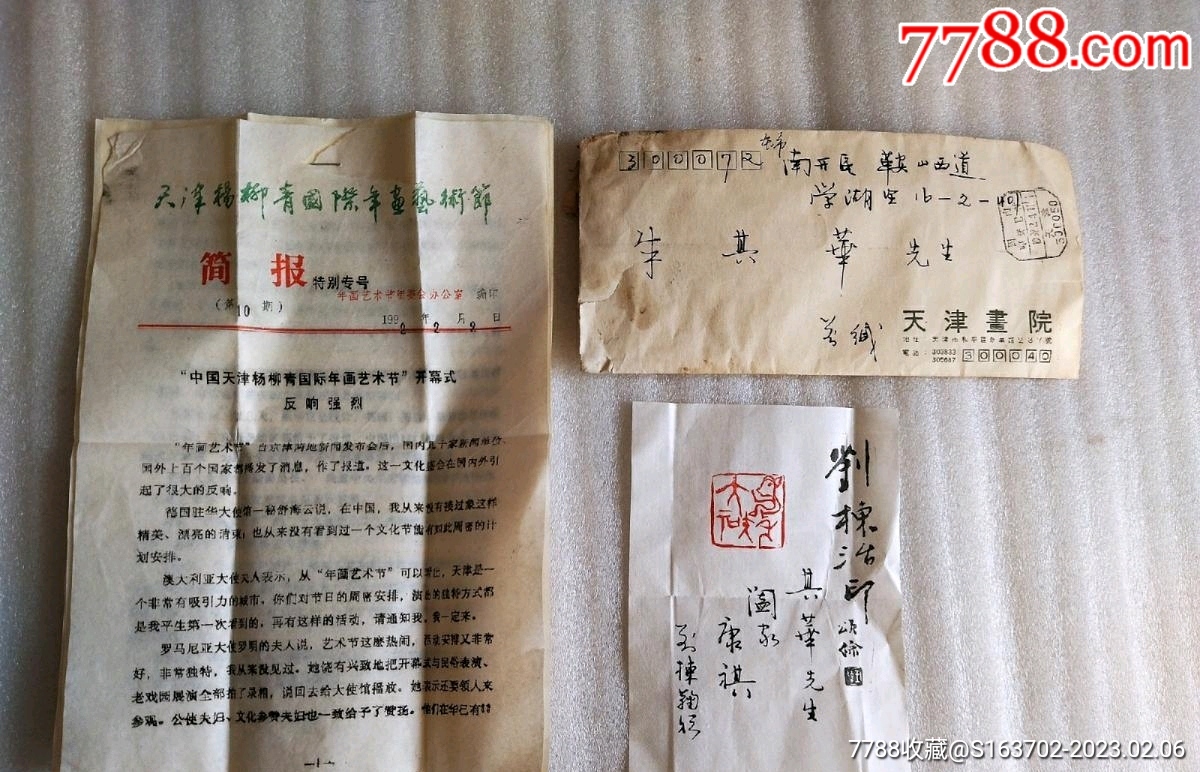 7788.com
天津楊柳青國際年畫藝術節
简报 特别专号
年画艺术节组委会办公室 编印
(第10期)
1992年2月2日
“中国天津杨柳青国际年画艺术节”开幕式
反响强烈
“年画艺术节”自京津两地新闻发布会后，国内几十家新闻单位、
国外上百个国家都播发了消息，作了报道。这一文化盛会在国内外引
起了很大的反响。
德国驻华大使第一秘舒海云说，在中国，我从来没有接过象这样
精美、漂亮的请柬；也从来没有看到过一个文化节能有如此周密的计
划安排。
澳大利亚大使夫人表示，从“年画艺术节”可以看出，天津是一
个非常有吸引力的城市。你们对节日的周密安排，演出的独特方式都
是我平生第一次看到的，再有这样的活动，请通知我，我一定来。
罗马尼亚大使罗明的夫人说，艺术节这麽热闹，活动安排又非常
好，非常独特，我从来没见过。她饶有兴致地把开幕式与民俗表演、
老戏画展演全部拍了录相，说回去给大使馆播放。她表示还要领人来
参观。公使夫妇、文化参赞夫妇也一致给予了赞扬。他们在华已有
—1—
300072
本市
南开区 鞍山西道
学湖里 16-2-
朱其華 先生
天津畫院
地址：天津市和平区
電話：303833
305687
300040
300050
劉棟 治印
頌徐
其華先生
阖家
康祺
刘棟鞠躬
7788收藏@S163702-2023.02.06